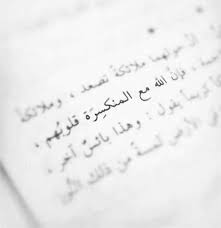 حولهما ملائكةً تصعد ، وملائكةً
، فإنَّ الله مع المنكسِرَة قلوبُهم ،
يقول : وهذا بائسٌ آخر ،
في الأرض لمسة من ذلك